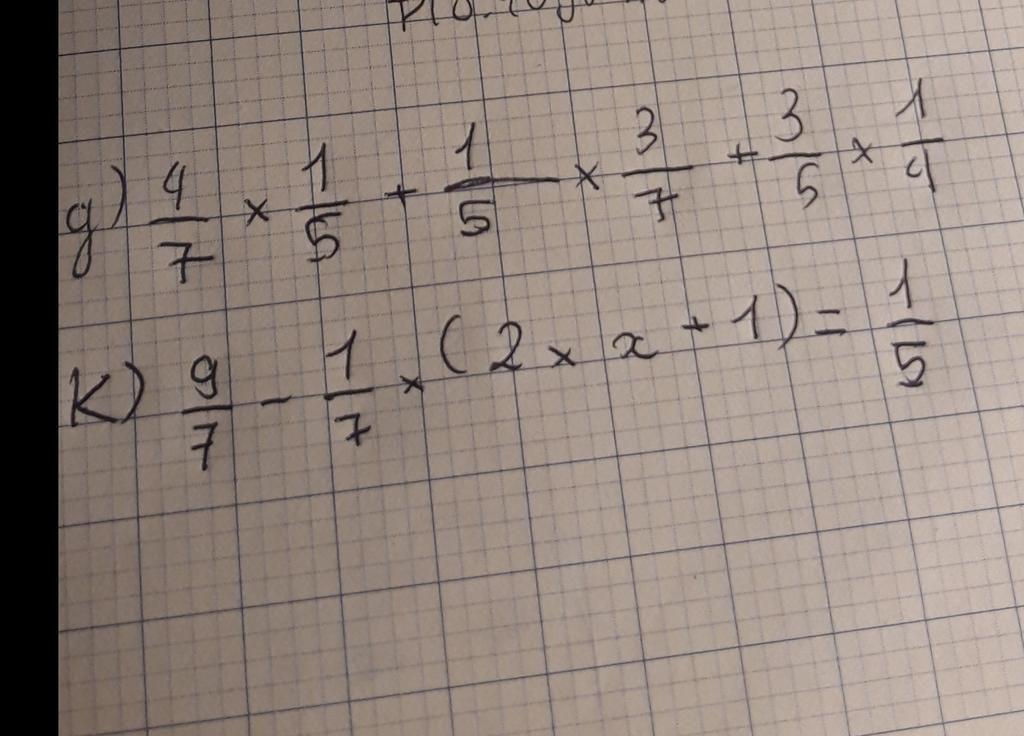 g) 4/7 × 1/5 + 1/5 × 3/7 + 3/5 × 1/4
K) 9/7 - 1/7 × (2 × x + 1) = 1/5